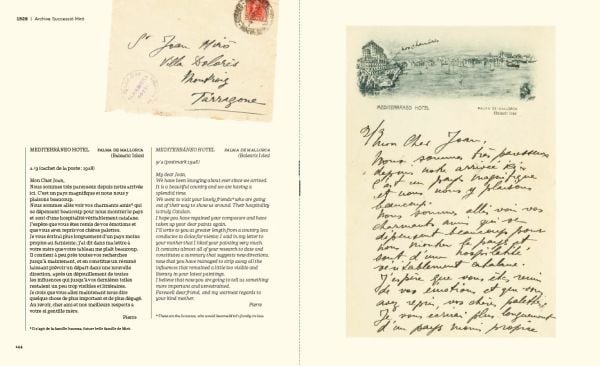 1928 | Archive Successió Miró
Sr Joan Miró
Villa Dolorès
Montroig
Tarragone
MEDITERRÁNEO HOTEL PALMA DE MALLORCA
(Balearic Isles)
2/9 (cachet de la poste ; 1928)
Mon Cher Joan,
Nous sommes très paresseux depuis notre arrivée
ici. C'est un pays magnifique et nous nous y
plaisons beaucoup.
Nous sommes allés voir vos charmants amis* qui
se dépensent beaucoup pour nous montrer le pays
et sont d'une hospitalité véritablement catalane.
J'espère que vous êtes remis de vos émotions et
que vous avez repris vos chères palettes.
Je vous écrirai plus longuement d'un pays moins
propice au farniente, j'ai dit dans ma lettre à
votre mère que votre tableau me plaît beaucoup.
Il contient à peu près toutes vos recherches
jusqu'à maintenant, et en constitue un résumé
laissant prévoir un départ dans une nouvelle
direction, après un dépouillement de toutes
les influences qui jusqu'à vos dernières toiles
restaient un peu trop visibles et littéraires.
Je crois que vous allez maintenant nous dire
quelque chose de plus important et de plus dégagé.
Au revoir, cher ami et mes meilleurs respects à
votre si gentille mère.
Pierre
MEDITERRÁNEO HOTEL PALMA DE MALLORCA
(Balearic Isles)
My dear Joan,
We have been lounging about ever since we arrived.
It is a beautiful country and we are having a
splendid time.
We went to visit your lovely friends* who are going
out of their way to show us around. Their hospitality
is truly Catalan.
I hope you have regained your composure and have
taken up your dear palettes again.
I'll write to you at greater length from a country less
conducive to dolce far niente. I said in my letter to
your mother that I liked your painting very much.
It contains almost all of your research to date and
constitutes a summary that suggests new directions,
now that you have managed to strip away all the
influences that remained a little too visible and
literary in your latest paintings.
I believe that now you are going to tell us something
more important and unrestrained.
Farewell dear friend, and my warmest regards to
your kind mother.
Pierre
144
MEDITERRÁNEO HOTEL
PALMA DE MALLORCA
(Balearic Isles)
2/9
Mon Cher Joan,
Nous sommes très paresseux
depuis notre arrivée ici.
C'est un pays magnifique
et nous nous y plaisons
beaucoup.
Nous sommes allés voir vos
charmants amis qui se
dépensent beaucoup pour
nous montrer le pays et
sont d'une hospitalité
véritablement catalane.
J'espère que vous êtes remis
de vos émotions et que vous
avez repris vos chères palettes.
Je vous écrirai plus longuement
d'un pays moins propice